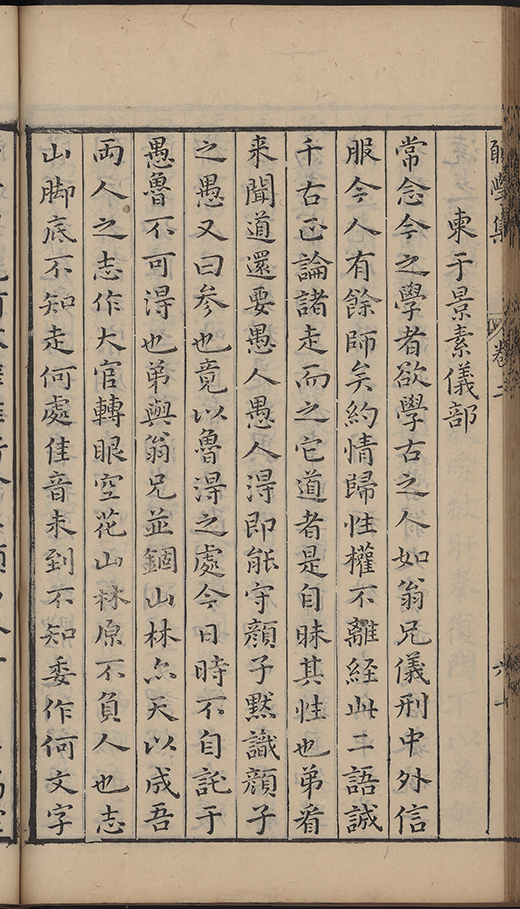 學集
卷二
六十
柬于景素儀部
常念今之學者欲學古之人如翁兄儀刑中外信
服今人有餘師矣約情歸性權不離經此二語誠
千古正論諸走而之它道者是自昧其性也弟看
来聞道還要愚人愚人得即能守顔子默識顔子
之愚又曰参也竟以魯得之處今日時不自託于
愚魯不可得也弟與翁兄並錮山林亦天以成吾
兩人之志作大官轉眼空花山林原不負人也志
山脚底不知走何處佳音未到不知委作何文字